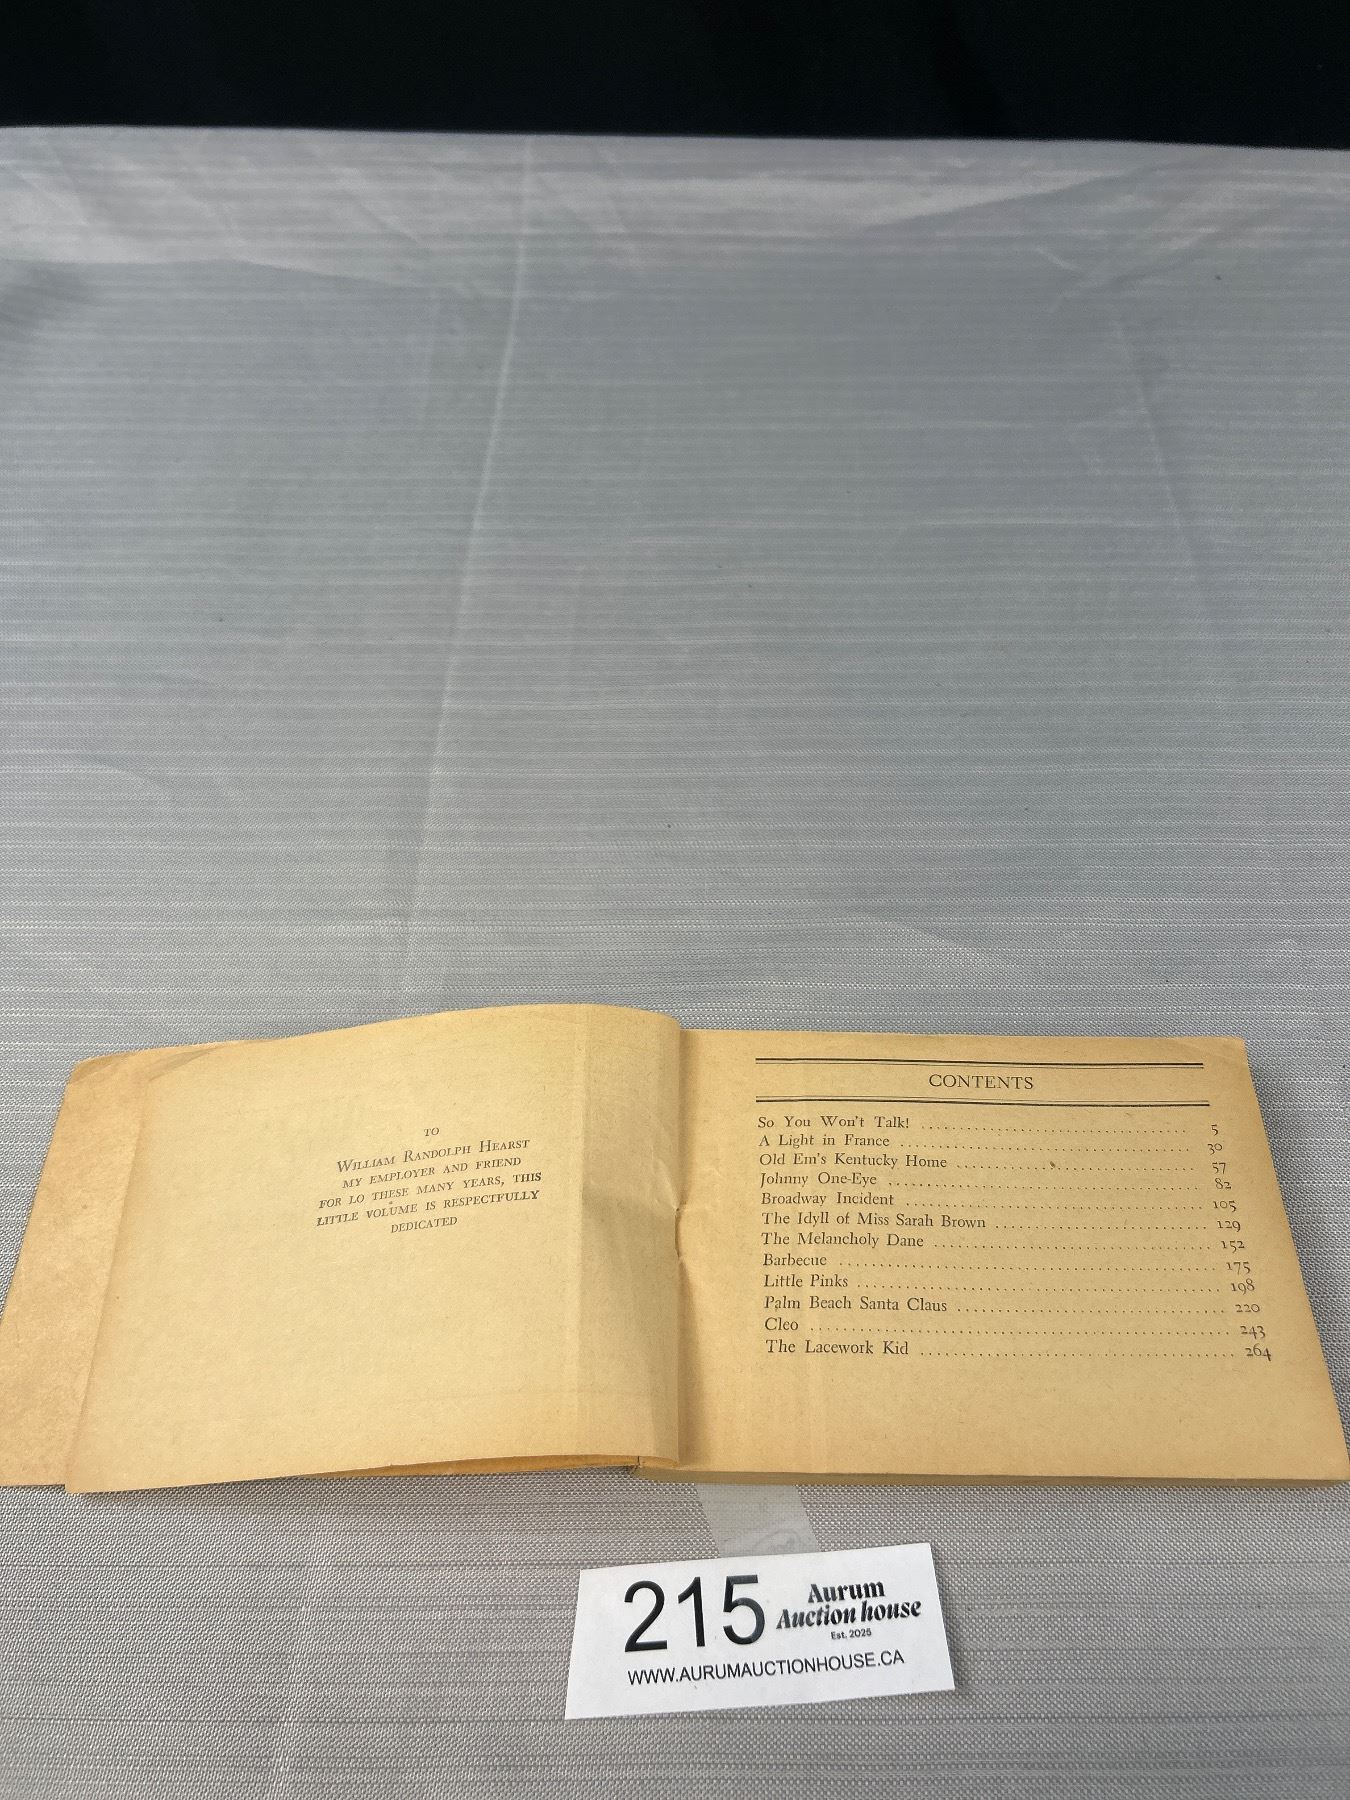 TO
WILLIAM RANDOLPH HEARST
MY EMPLOYER AND FRIEND
FOR LO THESE MANY YEARS, THIS
LITTLE VOLUME IS RESPECTFULLY
DEDICATED
CONTENTS
So You Won't Talk! .......... 5
A Light in France .......... 30
Old Em's Kentucky Home .......... 57
Johnny One-Eye .......... 82
Broadway Incident .......... 105
The Idyll of Miss Sarah Brown .......... 129
The Melancholy Dane .......... 152
Barbecue .......... 175
Little Pinks .......... 198
Palm Beach Santa Claus .......... 220
Cleo .......... 243
The Lacework Kid .......... 264
215
Aurum
Auction house
Est. 2025
WWW.AURUMAUCTIONHOUSE.CA